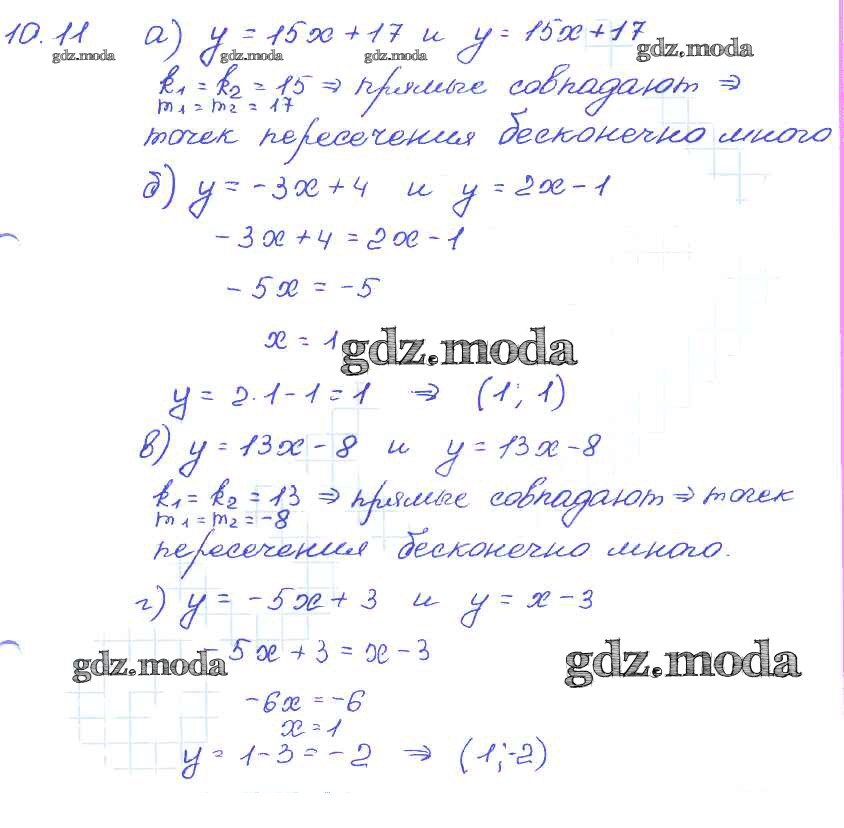 10.11 а) y = 15x + 17 и y = 15x + 17
gdz.moda gdz.moda gdz.moda gdz.moda
k₁ = k₂ = 15 ⇒ прямые совпадают ⇒
m₁ = m₂ = 17
точек пересечения бесконечно много
б) y = -3x + 4 и y = 2x - 1
-3x + 4 = 2x - 1
-5x = -5
x = 1
gdz.moda
y = 2·1 - 1 = 1 ⇒ (1; 1)
в) y = 13x - 8 и y = 13x - 8
k₁ = k₂ = 13 ⇒ прямые совпадают ⇒ точек
m₁ = m₂ = -8
пересечения бесконечно много.
г) y = -5x + 3 и y = x - 3
-5x + 3 = x - 3
gdz.moda gdz.moda
-6x = -6
x = 1
y = 1 - 3 = -2 ⇒ (1; -2)